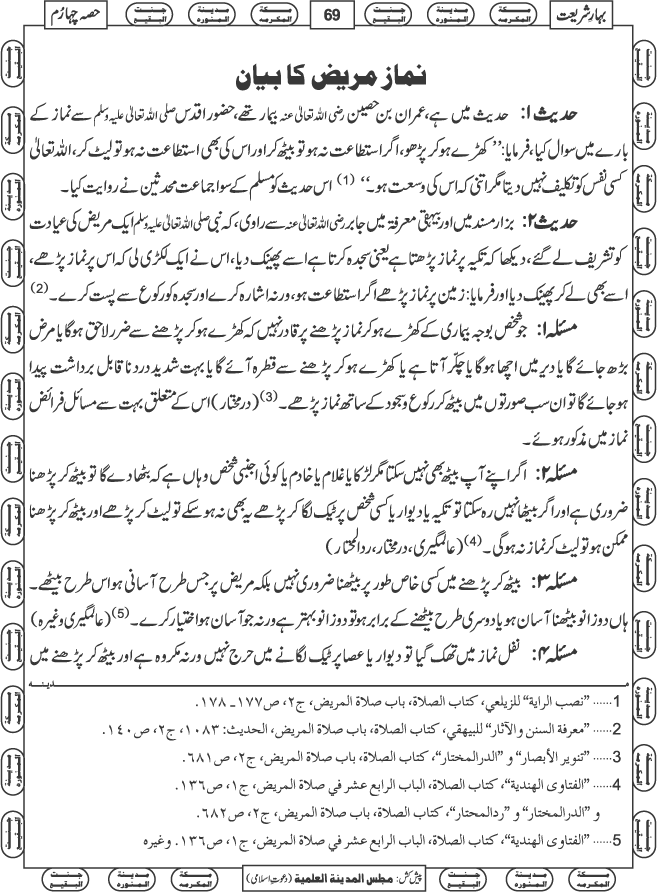 بہارِ شریعت
جنت البقیع
مدینۃ المنورہ
مکۃ المکرمہ
69
جنت البقیع
مدینۃ المنورہ
مکۃ المکرمہ
حصہ چہارم
نماز مریض کا بیان
حدیث ۱: حدیث میں ہے، عمران بن حصین رضی اللہ تعالیٰ عنہ بیمار تھے، حضورِ اقدس صلی اللہ تعالیٰ علیہ وسلم سے نماز کے
بارے میں سوال کیا، فرمایا: ’’کھڑے ہو کر پڑھو، اگر استطاعت نہ ہو تو بیٹھ کر اور اس کی بھی استطاعت نہ ہو تو لیٹ کر، اللہ تعالیٰ
کسی نفس کو تکلیف نہیں دیتا مگر اتنی کہ اس کی وسعت ہو۔‘‘ (1) اس حدیث کو مسلم کے سوا جماعت محدثین نے روایت کیا۔
حدیث ۲: بزار مسند میں اور بیہقی معرفۃ میں جابر رضی اللہ تعالیٰ عنہ سے راوی، کہ نبی صلی اللہ تعالیٰ علیہ وسلم ایک مریض کی عیادت
کو تشریف لے گئے، دیکھا کہ تکیہ پر نماز پڑھتا ہے یعنی سجدہ کرتا ہے اسے پھینک دیا، اس نے ایک لکڑی لی کہ اس پر نماز پڑھے،
اسے بھی لے کر پھینک دیا اور فرمایا: زمین پر نماز پڑھے اگر استطاعت ہو، ورنہ اشارہ کرے اور سجدہ کو رکوع سے پست کرے۔ (2)
مسئلہ ۱: جو شخص بوجہ بیماری کے کھڑے ہو کر نماز پڑھنے پر قادر نہیں کہ کھڑے ہو کر پڑھنے سے ضرر لاحق ہوگا یا مرض
بڑھ جائے گا یا دیر میں اچھا ہوگا یا چکّر آتا ہے یا کھڑے ہو کر پڑھنے سے قطرہ آئے گا یا بہت شدید درد ناقابلِ برداشت پیدا
ہو جائے گا تو ان سب صورتوں میں بیٹھ کر رکوع و سجود کے ساتھ نماز پڑھے۔ (3) (درمختار) اس کے متعلق بہت سے مسائل فرائض
نماز میں مذکور ہوئے۔
مسئلہ ۲: اگر اپنے آپ بیٹھ بھی نہیں سکتا مگر لڑکا یا غلام یا خادم یا کوئی اجنبی شخص وہاں ہے کہ بٹھا دے گا تو بیٹھ کر پڑھنا
ضروری ہے اور اگر بیٹھا نہیں رہ سکتا تو تکیہ یا دیوار یا کسی شخص پر ٹیک لگا کر پڑھے یہ بھی نہ ہو سکے تو لیٹ کر پڑھے اور بیٹھ کر پڑھنا
ممکن ہو تو لیٹ کر نماز نہ ہوگی۔ (4) (عالمگیری، درمختار، ردالمحتار)
مسئلہ ۳: بیٹھ کر پڑھنے میں کسی خاص طور پر بیٹھنا ضروری نہیں بلکہ مریض پر جس طرح آسانی ہو اس طرح بیٹھے۔
ہاں دو زانو بیٹھنا آسان ہو یا دوسری طرح بیٹھنے کے برابر ہو تو دو زانو بہتر ہے ورنہ جو آسان ہو اختیار کرے۔ (5) (عالمگیری وغیرہ)
مسئلہ ۴: نفل نماز میں تھک گیا تو دیوار یا عصا پر ٹیک لگانے میں حرج نہیں ورنہ مکروہ ہے اور بیٹھ کر پڑھنے میں
مدینہ
1...... ”نصب الراية“ للزيلعي، كتاب الصلاة، باب صلاة المريض، ج۲، ص۱۷۷ـ ۱۷۸.
2...... ”معرفة السنن والآثار“ للبيهقي، كتاب الصلاة، باب صلاة المريض، الحديث: ۱۰۸۳، ج۲، ص۱۴۰.
3...... ”تنوير الأبصار“ و ”الدرالمختار“، كتاب الصلاة، باب صلاة المريض، ج۲، ص۶۸۱.
4...... ”الفتاوى الهندية“، كتاب الصلاة، الباب الرابع عشر في صلاة المريض، ج۱، ص۱۳۶.
و ”الدرالمختار“ و ”ردالمحتار“، كتاب الصلاة، باب صلاة المريض، ج۲، ص۶۸۲.
5...... ”الفتاوى الهندية“، كتاب الصلاة، الباب الرابع عشر في صلاة المريض، ج۱، ص۱۳۶. وغيره
پیش کش: مجلس المدینۃ العلمیۃ (دعوت اسلامی)